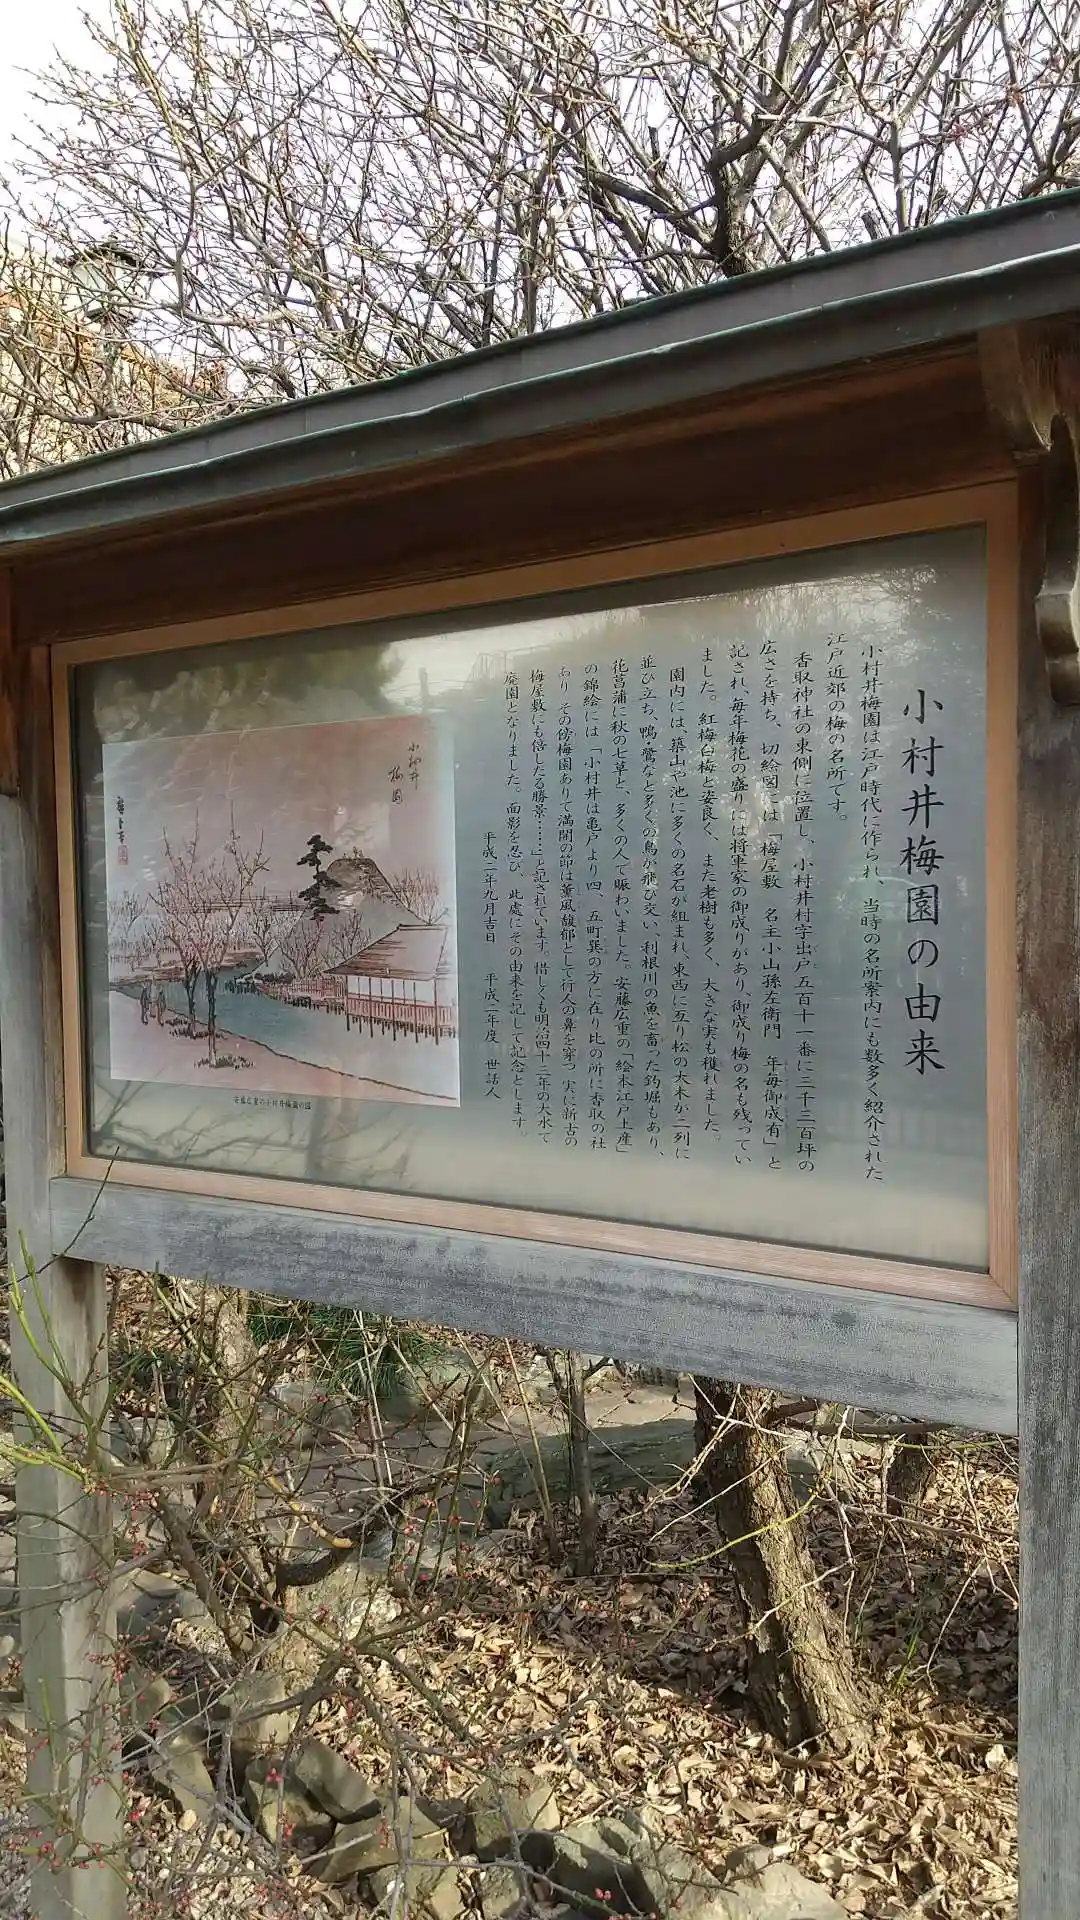 小村井梅園の由来
小村井梅園は江戸時代に作られ、当時の名所案内にも数多く紹介された
江戸近郊の梅の名所です。
香取神社の東側に位置し、小村井村字出戸五百十一番に三千三百坪の
広さを持ち、切絵図には「梅屋敷　名主小山孫左衛門　年毎御成有」と
記され、毎年梅花の盛りには将軍家の御成りがあり、御成り梅の名も残ってい
ました。紅梅白梅と姿良く、また老樹も多く、大きな実も穫れました。
園内には、築山や池に多くの名石が組まれ、東西に亙り松の大木が二列に
並び立ち、鴨、鶯など多くの鳥が飛び交い、利根川の魚を畜った釣堀もあり、
花菖蒲に秋の七草と、多くの人で賑わいました。安藤広重の「絵本江戸土産」
の錦絵には「小村井は亀戸より四、五町巽の方に在り比の所に香取の社
あり その傍梅園ありて満開の節は薫風馥郁として行人の鼻を穿つ 実に新古の
梅屋敷にも倍したる勝景……」と記されています。惜しくも明治四十三年の大水で
廃園となりました。面影を忍び、此處にその由来を記して記念とします。
平成二年九月吉日　平成二年度　世話人
小村井
梅園
安藤広重の小村井梅園の図